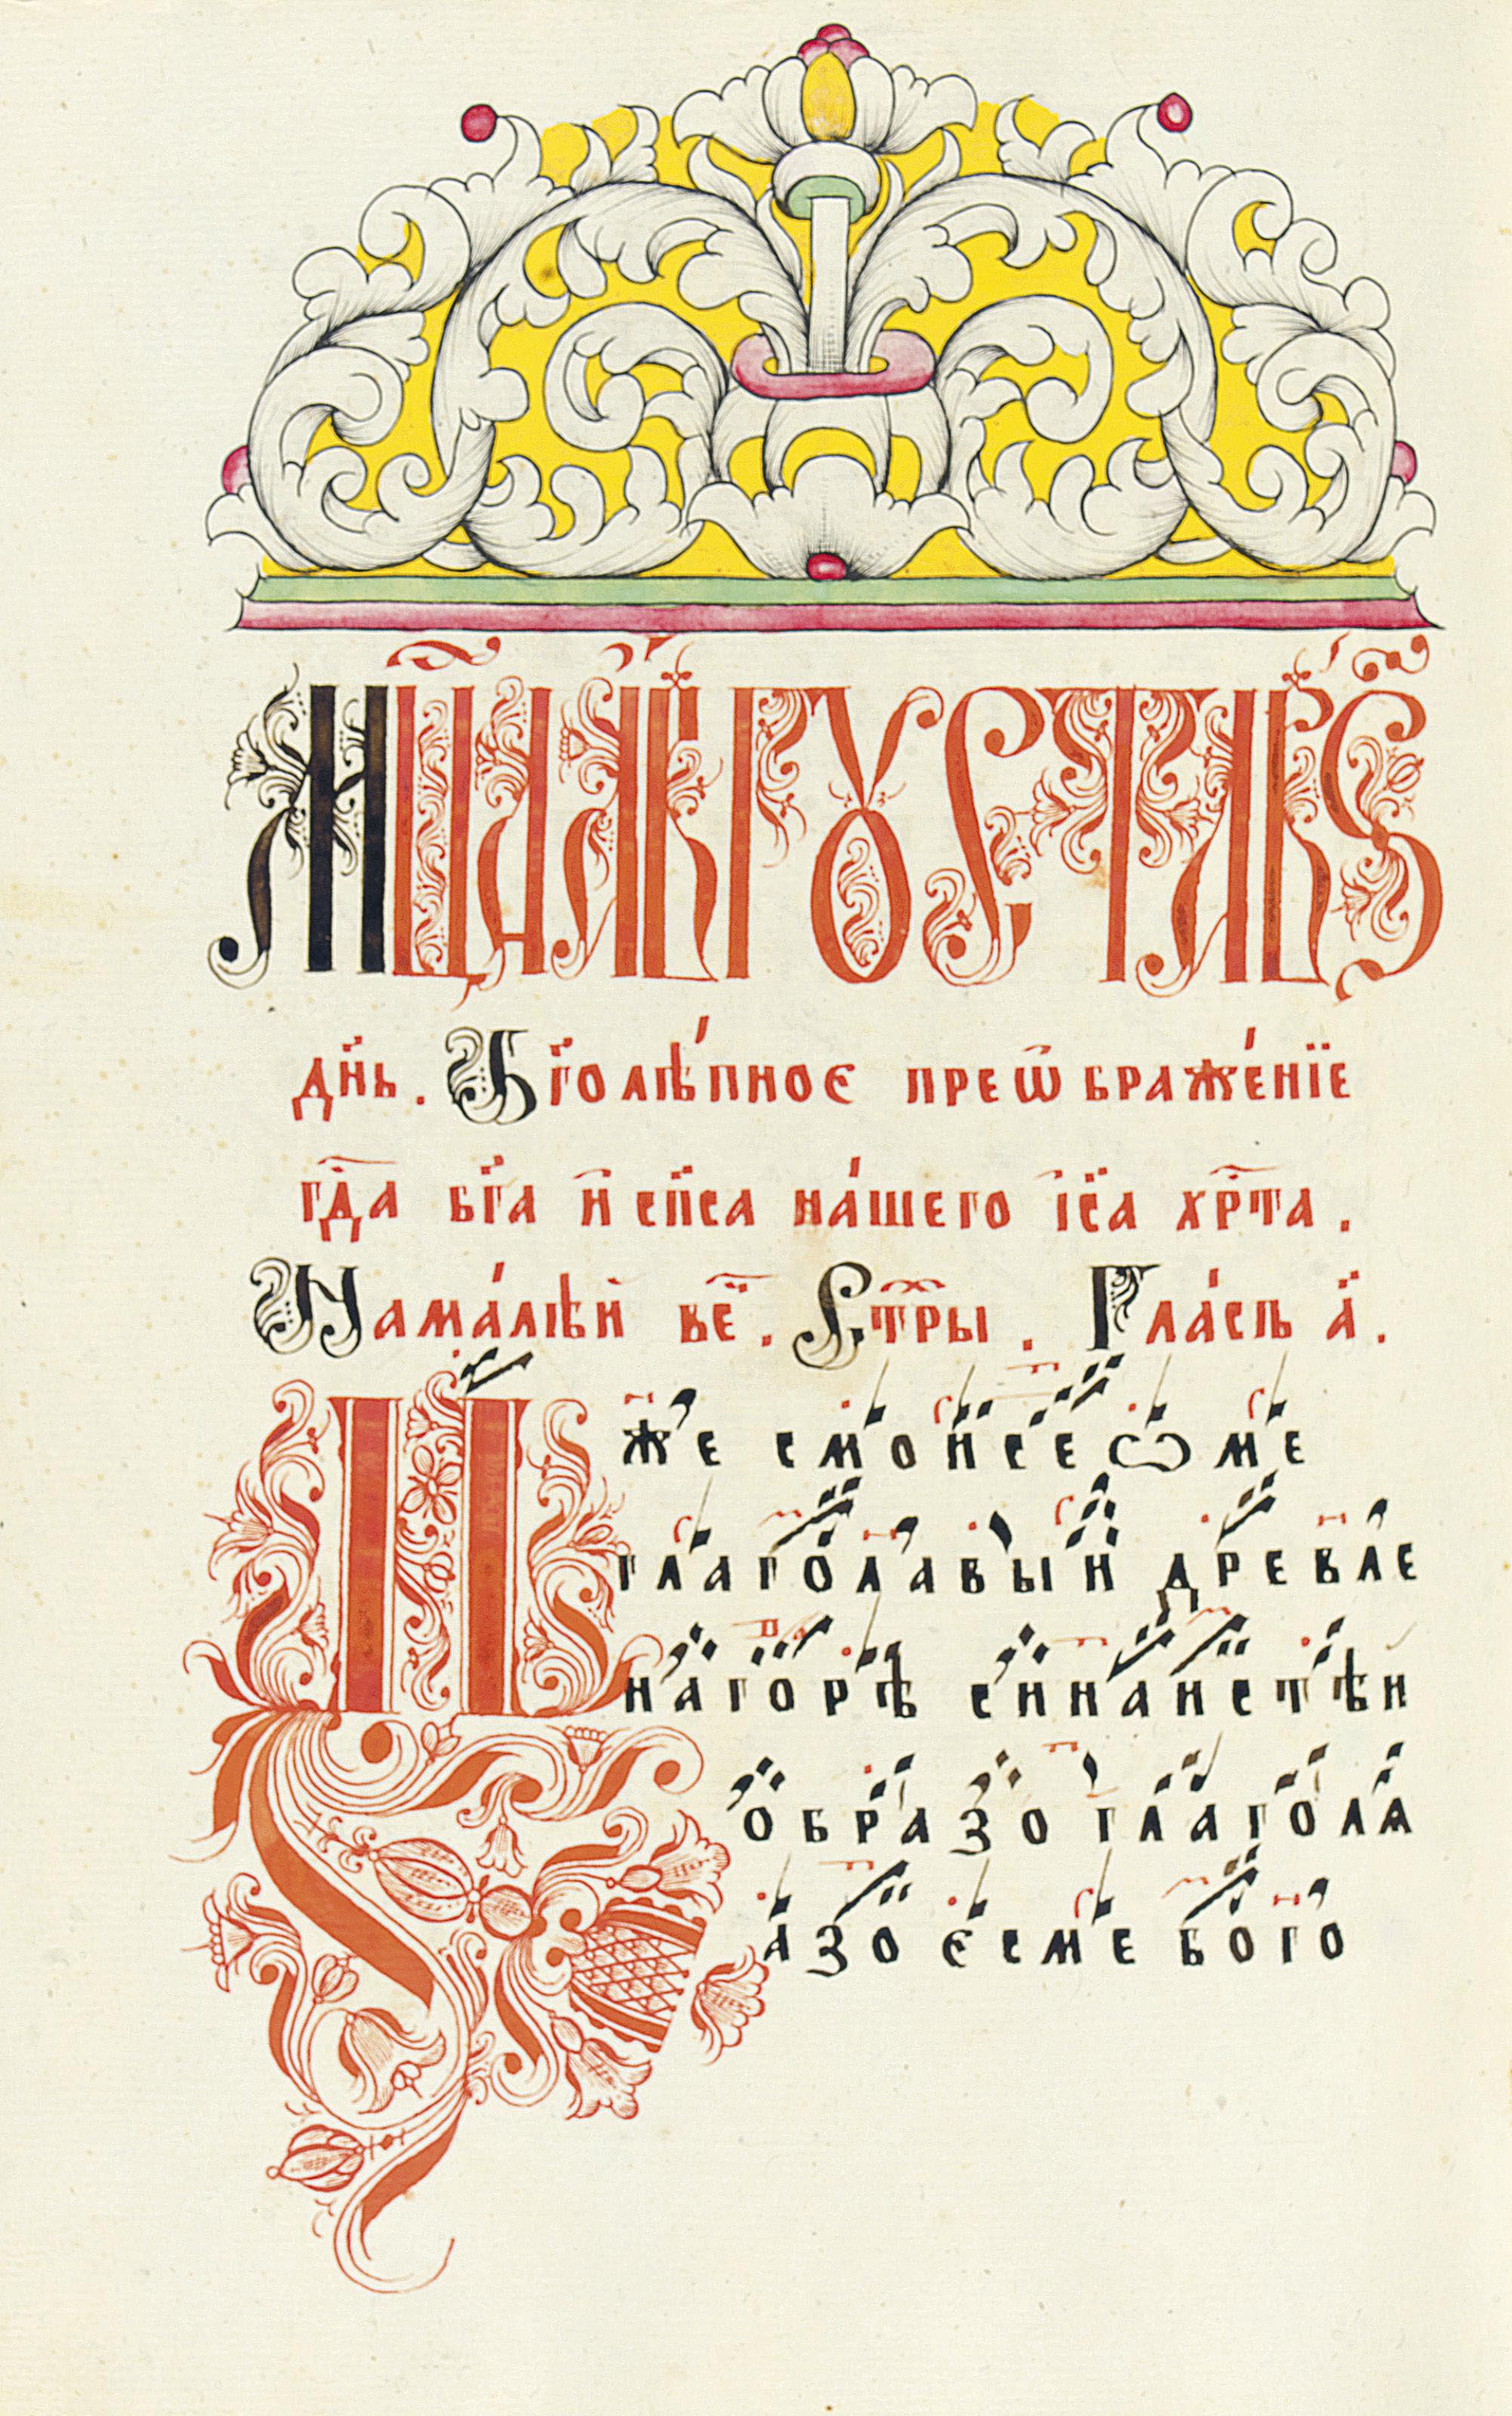 Мц҃а а́вгꙋста въ ѕ҃
дн҃ь. Бг҃олѣ́пное преѡбраже́нїе
гд҃а бг҃а и сп҃са на́шего іс҃а хр҃та.
На ма́лѣи ве҃. Ст҃ры. Гла́съ а҃.
Иже с моисеѡме
глаголавыи древле
на горѣ синаистѣи
образо глаголѧ
азо есме бого